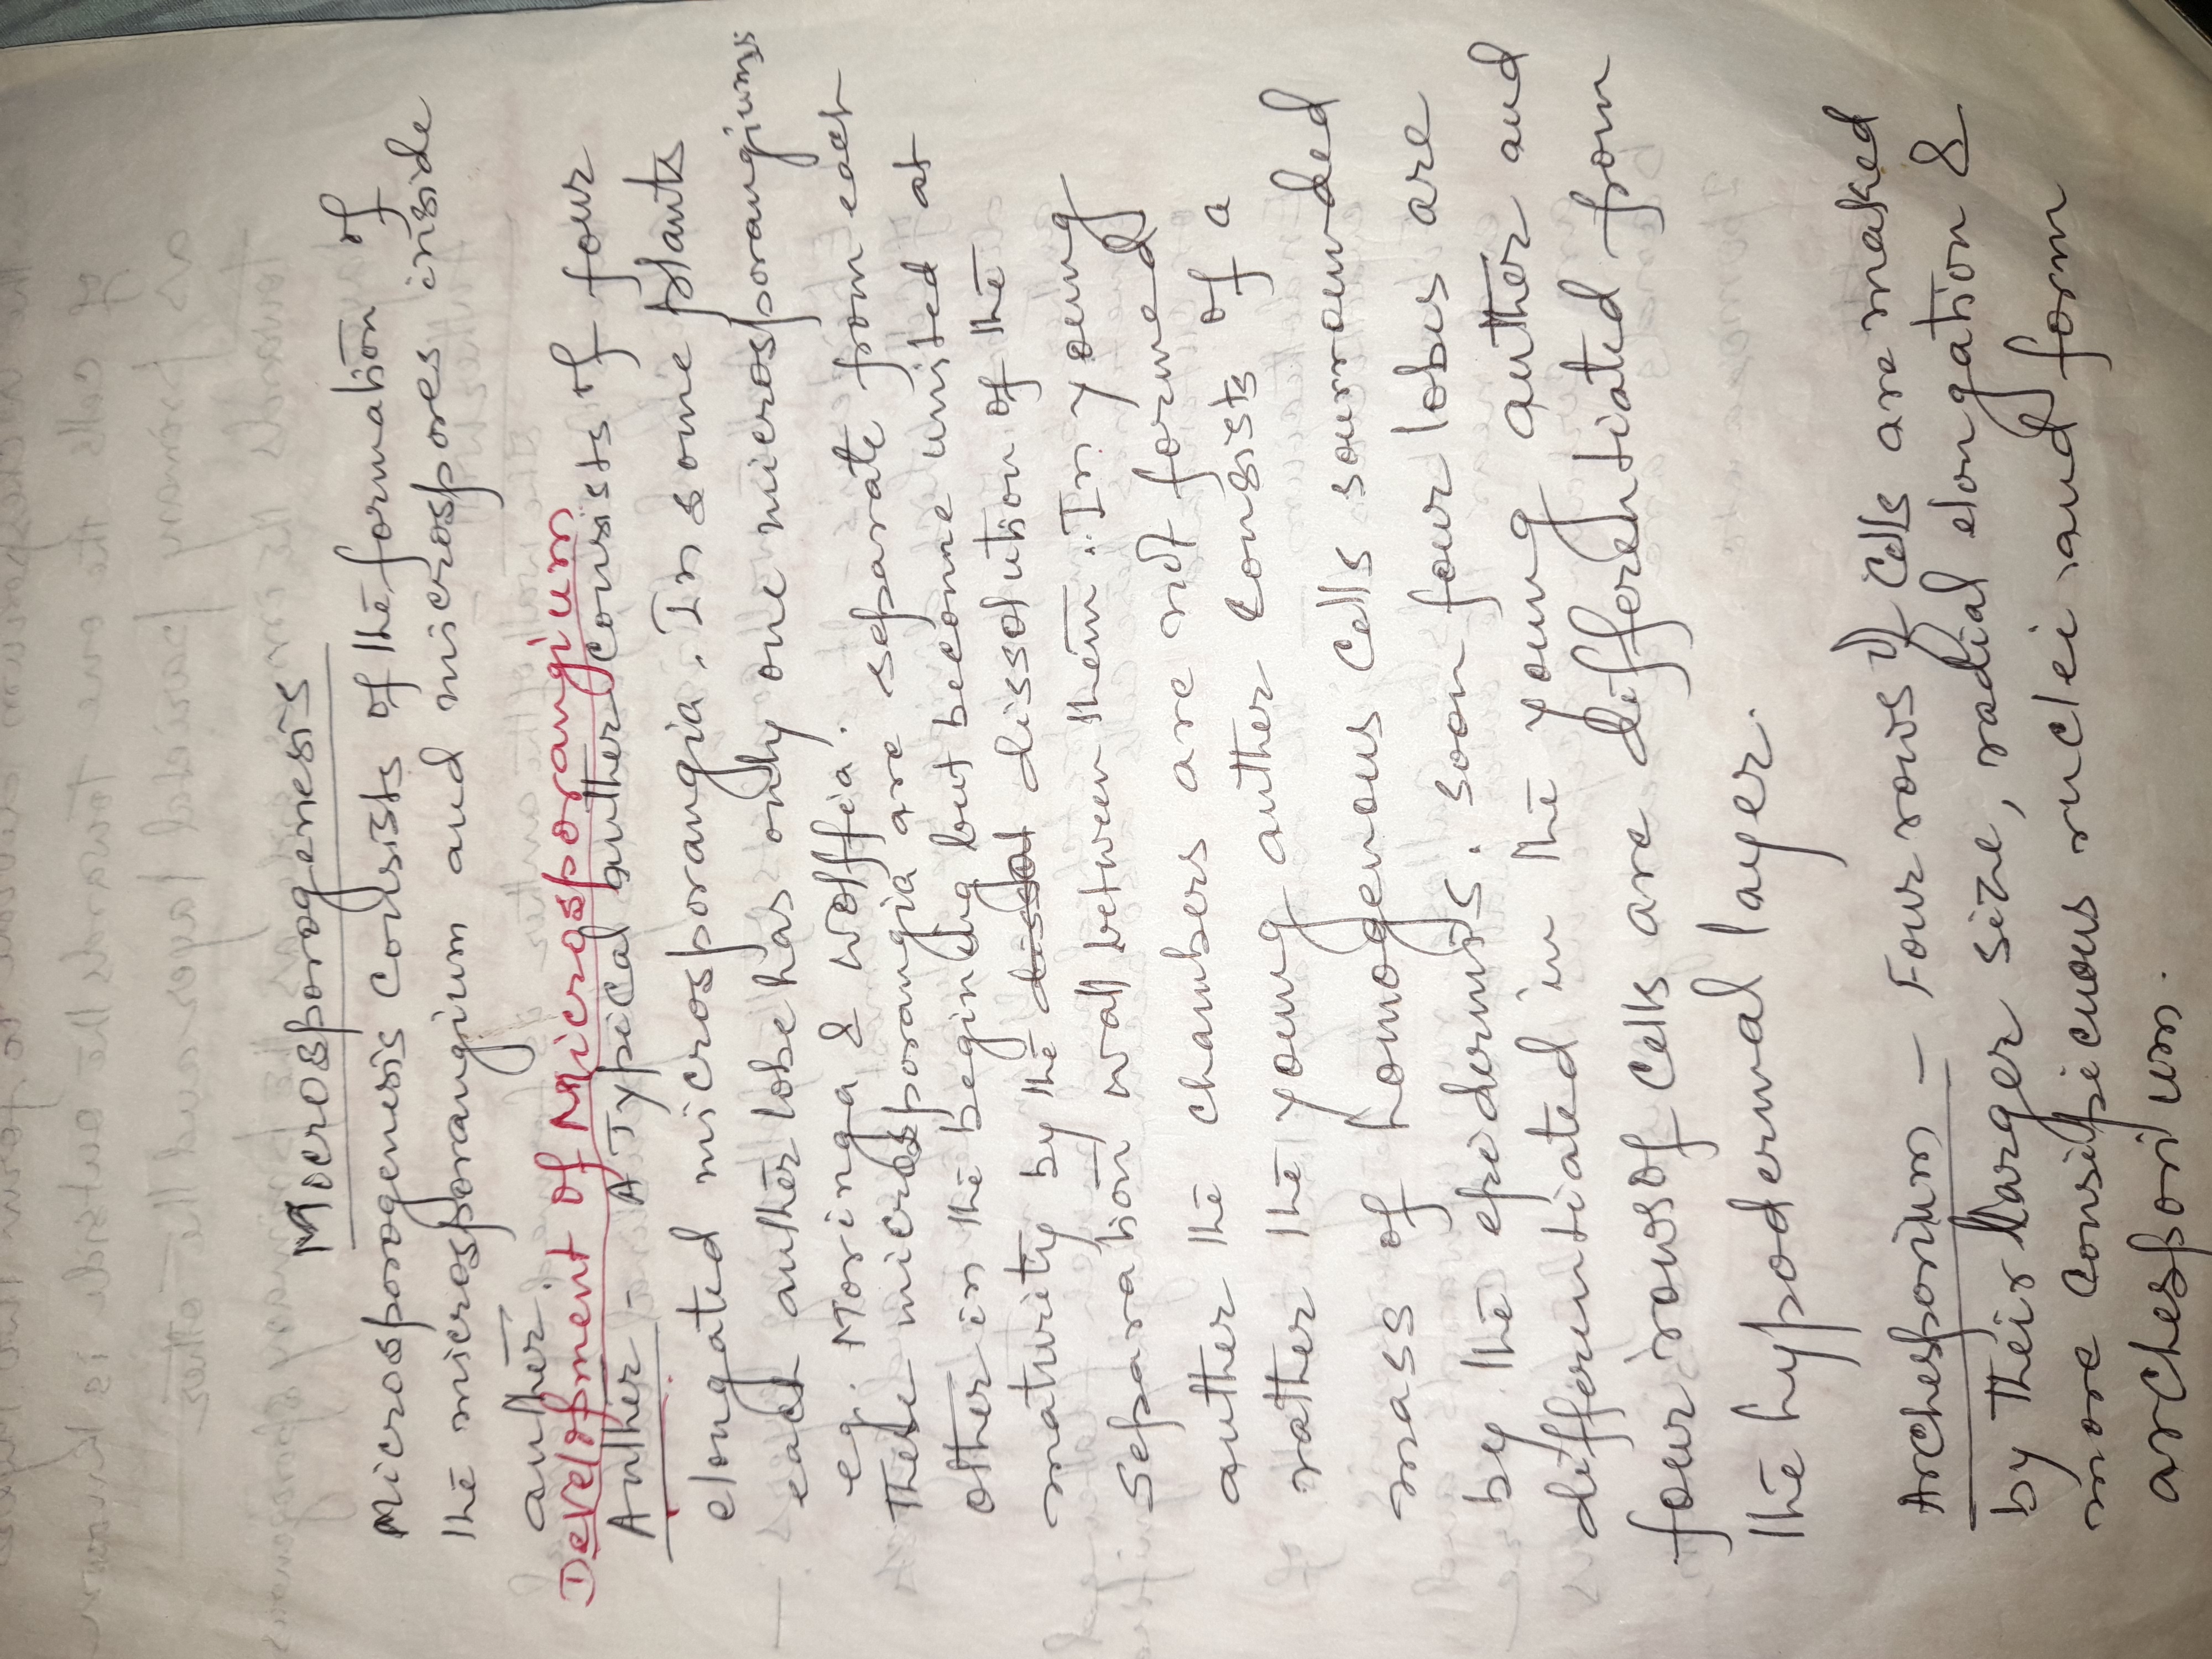 Microsporogenesis
Microsporogenesis consists of the formation of
the microsporangium and microspores inside
anther.
Development of Microsporangium
Anther - A Typical anther consists of four
elongated microsporangia. In some plants
each anther lobe has only one microsporangiums
eg. Moringa & Wolffia.
These microsporangia are separate from each
other in the begining but become united at
maturity by the dissolution of the
separation wall between them. In young
anther the chambers are not formed
rather the young anther consists of a
mass of homogenous cells sourrounded
by the epidermis. soon four lobes are
differentiated in the young anther and
four rows of cells are differentiated from
the hypodermal layer.
Archesporium - Four rows of cells are maked
by their larger size, radial elongation &
more consipicuous nuclei and form
archesporium.